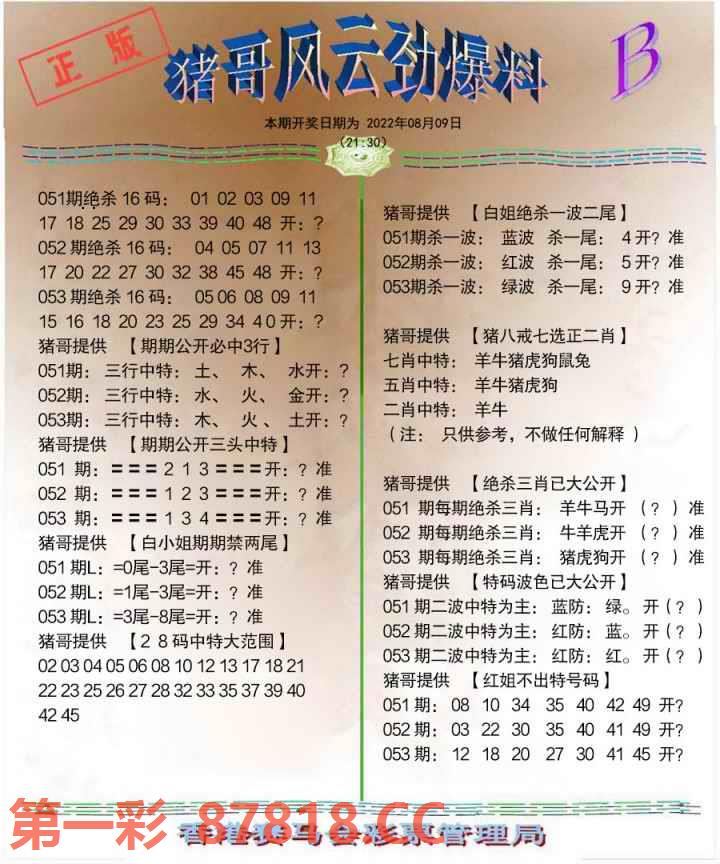 正版
猪哥风云劲爆料
B
本期开奖日期为 2022年08月09日
(21:30)
051期绝杀16码: 01 02 03 09 11
17 18 25 29 30 33 39 40 48 开:?
052期绝杀16码: 04 05 07 11 13
17 20 22 27 30 32 38 45 48 开:?
053期绝杀16码: 05 06 08 09 11
15 16 18 20 23 25 29 34 40开:?
猪哥提供 【期期公开必中3行】
051期: 三行中特: 土、 木、 水开: ?
052期: 三行中特: 水、 火、 金开: ?
053期: 三行中特: 木、 火、 土开: ?
猪哥提供 【期期公开三头中特】
051 期: 〓〓〓213〓〓〓开: ? 准
052 期: 〓〓〓123〓〓〓开: ? 准
053 期: 〓〓〓134〓〓〓开: ? 准
猪哥提供 【白小姐期期禁两尾】
051期L: =0尾-3尾=开: ? 准
052期L: =1尾-3尾=开: ? 准
053期L: =3尾-8尾=开: ? 准
猪哥提供 【28码中特大范围】
02 03 04 05 06 08 10 12 13 17 18 21
22 23 25 26 27 28 32 33 35 37 39 40
42 45
猪哥提供 【白姐绝杀一波二尾】
051期杀一波: 蓝波 杀一尾: 4开? 准
052期杀一波: 红波 杀一尾: 5开? 准
053期杀一波: 绿波 杀一尾: 9开? 准
猪哥提供 【猪八戒七选正二肖】
七肖中特: 羊牛猪虎狗鼠兔
五肖中特: 羊牛猪虎狗
二肖中特: 羊牛
(注: 只供参考,不做任何解释)
猪哥提供 【绝杀三肖已大公开】
051 期每期绝杀三肖: 羊牛马开 (?)准
052 期每期绝杀三肖: 牛羊虎开 (?)准
053 期每期绝杀三肖: 猪虎狗开 (?)准
猪哥提供 【特码波色已大公开】
051期二波中特为主: 蓝防: 绿。开(?)
052期二波中特为主: 红防: 蓝。开(?)
053期二波中特为主: 红防: 红。开(?)
猪哥提供 【红姐不出特号码】
051期: 08 10 34 35 40 42 49 开?
052期: 03 22 30 35 40 41 49 开?
053期: 12 18 20 27 30 41 45 开?
第一彩 87818.CC
香港赛马会彩票管理局